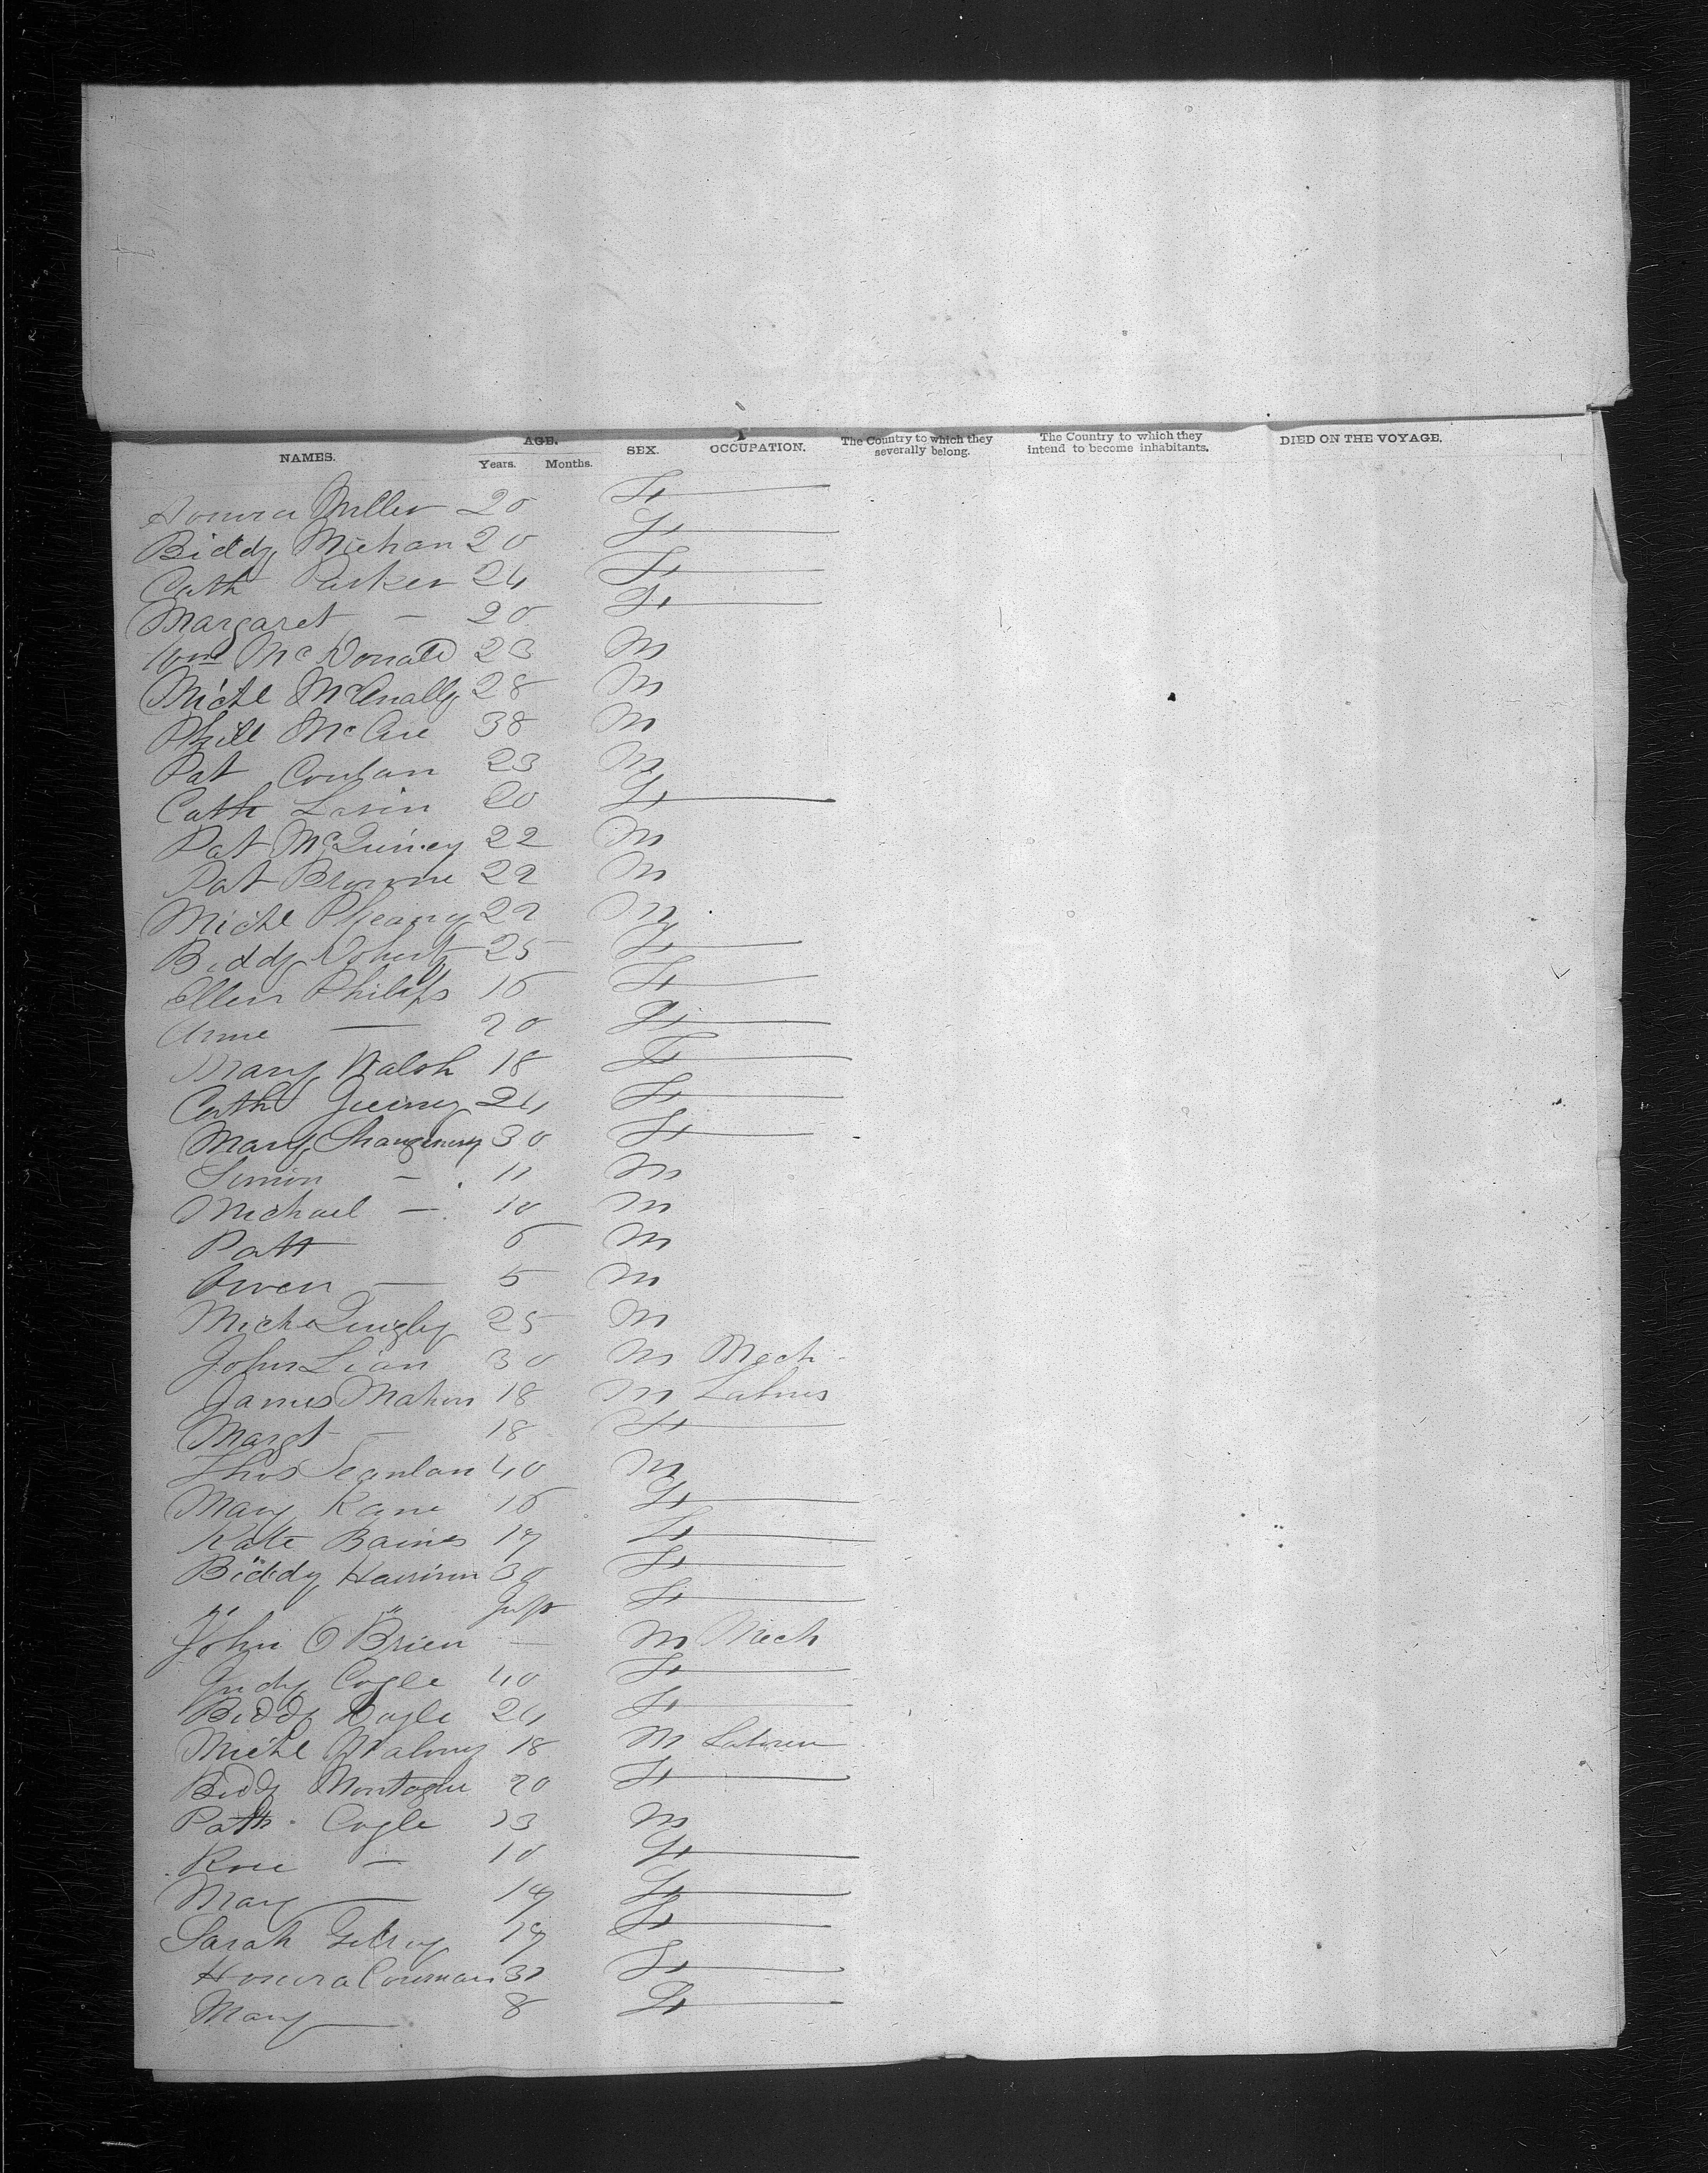 NAMES. AGE. Years. Months. SEX. OCCUPATION. The Country to which they severally belong. The Country to which they intend to become inhabitants. DIED ON THE VOYAGE.
Honora Miller 20 F
Biddy Michan 20 F
Cath Parker 24 F
Margaret — 20 F
Wm McDonald 23 M
Michl McAnally 28 M
Phill McCue 38 M
Pat 23 M
Cath Lavin 20 F
Pat 22 M
Pat Browne 22 M
Michl 22 M
Biddy Doherty 25 F
Ellen Philips 16 F
Anne — 20 F
Mary Walsh 18 F
Cath 24 F
Mary 30 F
Simon — 11 M
Michael — 10 M
Patt 6 M
Owen — 5 M
Mich Quigly 25 M
John Lian 30 M Mech
James Mahon 18 M
Margt — 18 F
Thos Scanlan 40 M
Mary Kane 16 F
Kate Baines 19 F
Biddy 30 F
" " Inft F
John O Brien — M Mech
Judy Cogle 40 F
Biddy 24 F
Michl Malony 18 M
Biddy Montague 20 F
Patk Cogle 13 M
Rose — 10 F
Mary — 19 F
Sarah Gilroy 19 F
Honora 31 F
Mary — 8 F